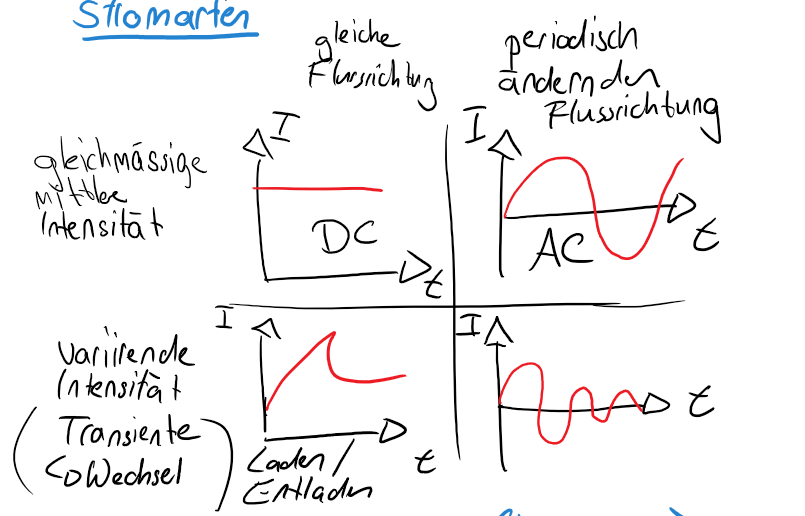 Stromarten
gleiche
Flussrichtung
periodisch
ändernden
Flussrichtung
gleichmässige
mittlere
Intensität
I
DC
t
I
AC
t
Variirende
Intensität
(Transiente
↳Wechsel)
I
t
Laden/
Entladen
I
t